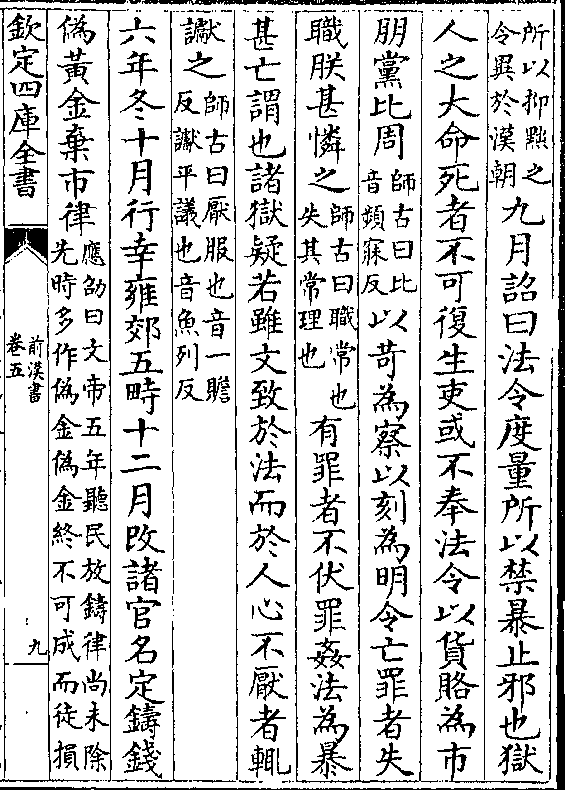 所以抑黜之
令異於漢朝
九月詔曰法令度量所以禁暴止邪也獄
人之大命死者不可復生吏或不奉法令以貨賂為市
朋黨比周
師古曰比
音頻寐反
以苛為察以刻為明令亡罪者失
職朕甚憐之
師古曰職常也
失其常理也
有罪者不伏罪姦法為暴
甚亡謂也諸獄疑若雖文致於法而於人心不厭者輒
讞之
師古曰厭服也音一贍
反讞平議也音魚列反
六年冬十月行幸雍郊五畤十二月改諸官名定鑄錢
偽黃金棄市律
應劭曰文帝五年聽民放鑄律尚未除
先時多作偽金偽金終不可成而徒損
欽定四庫全書
前漢書
卷五
九